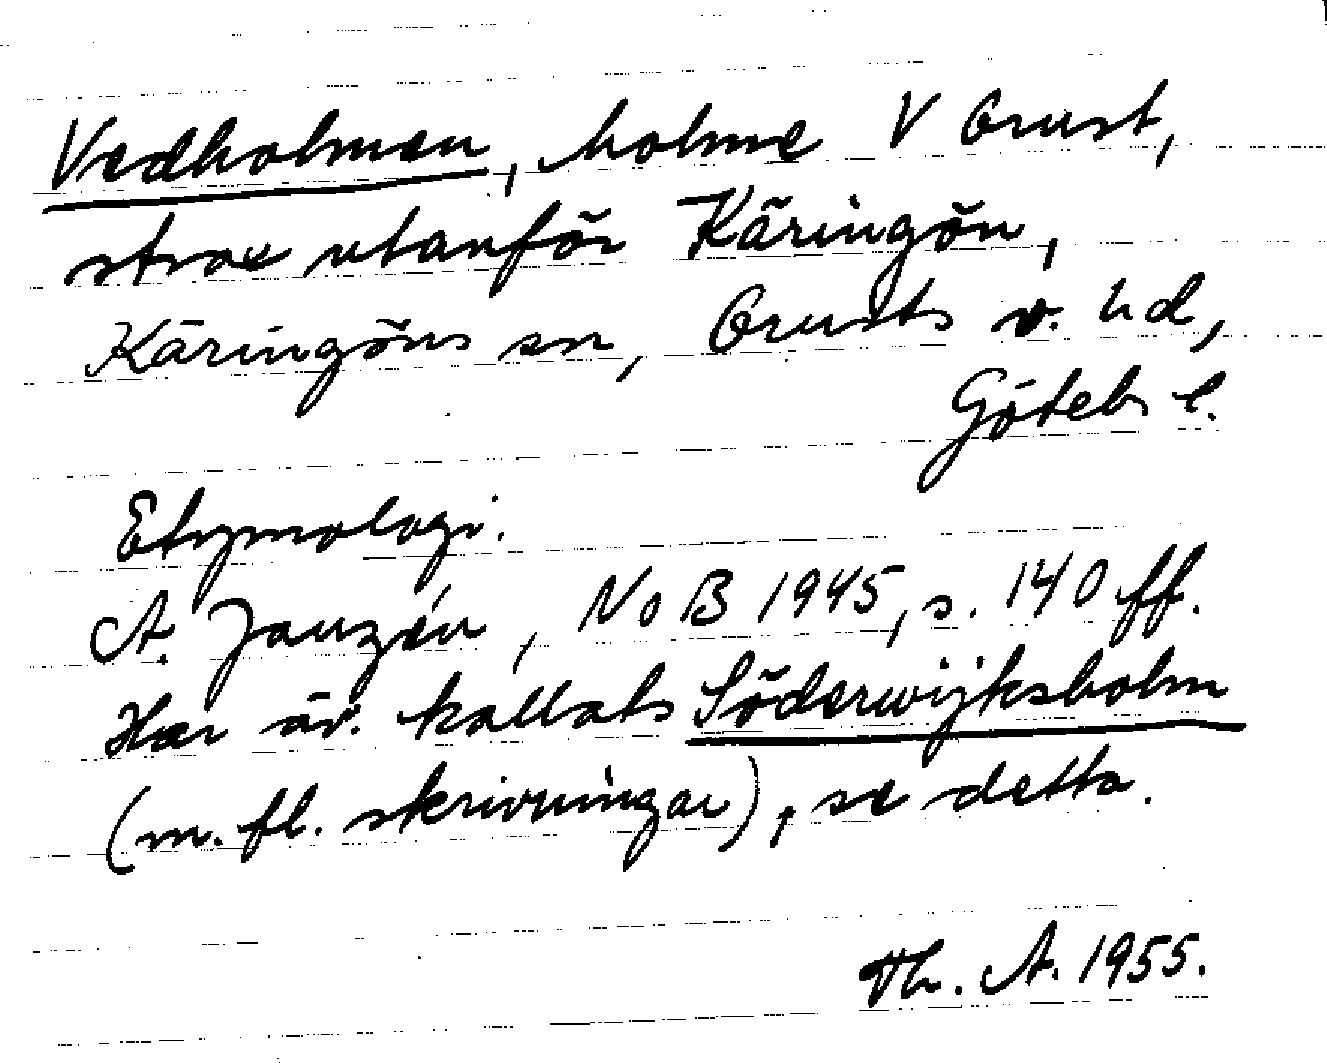 Vedholmen, holme V Orust,
strax utanför Käringön,
Käringöns sn, Orusts v. hd,
Götebs l.
Etymologi.
A. Janzén, NoB 1945, s. 140 ff.
Har äv. kallats Söderwijksholm
(m. fl. skrivningar), se detta.
Th. A. 1955.